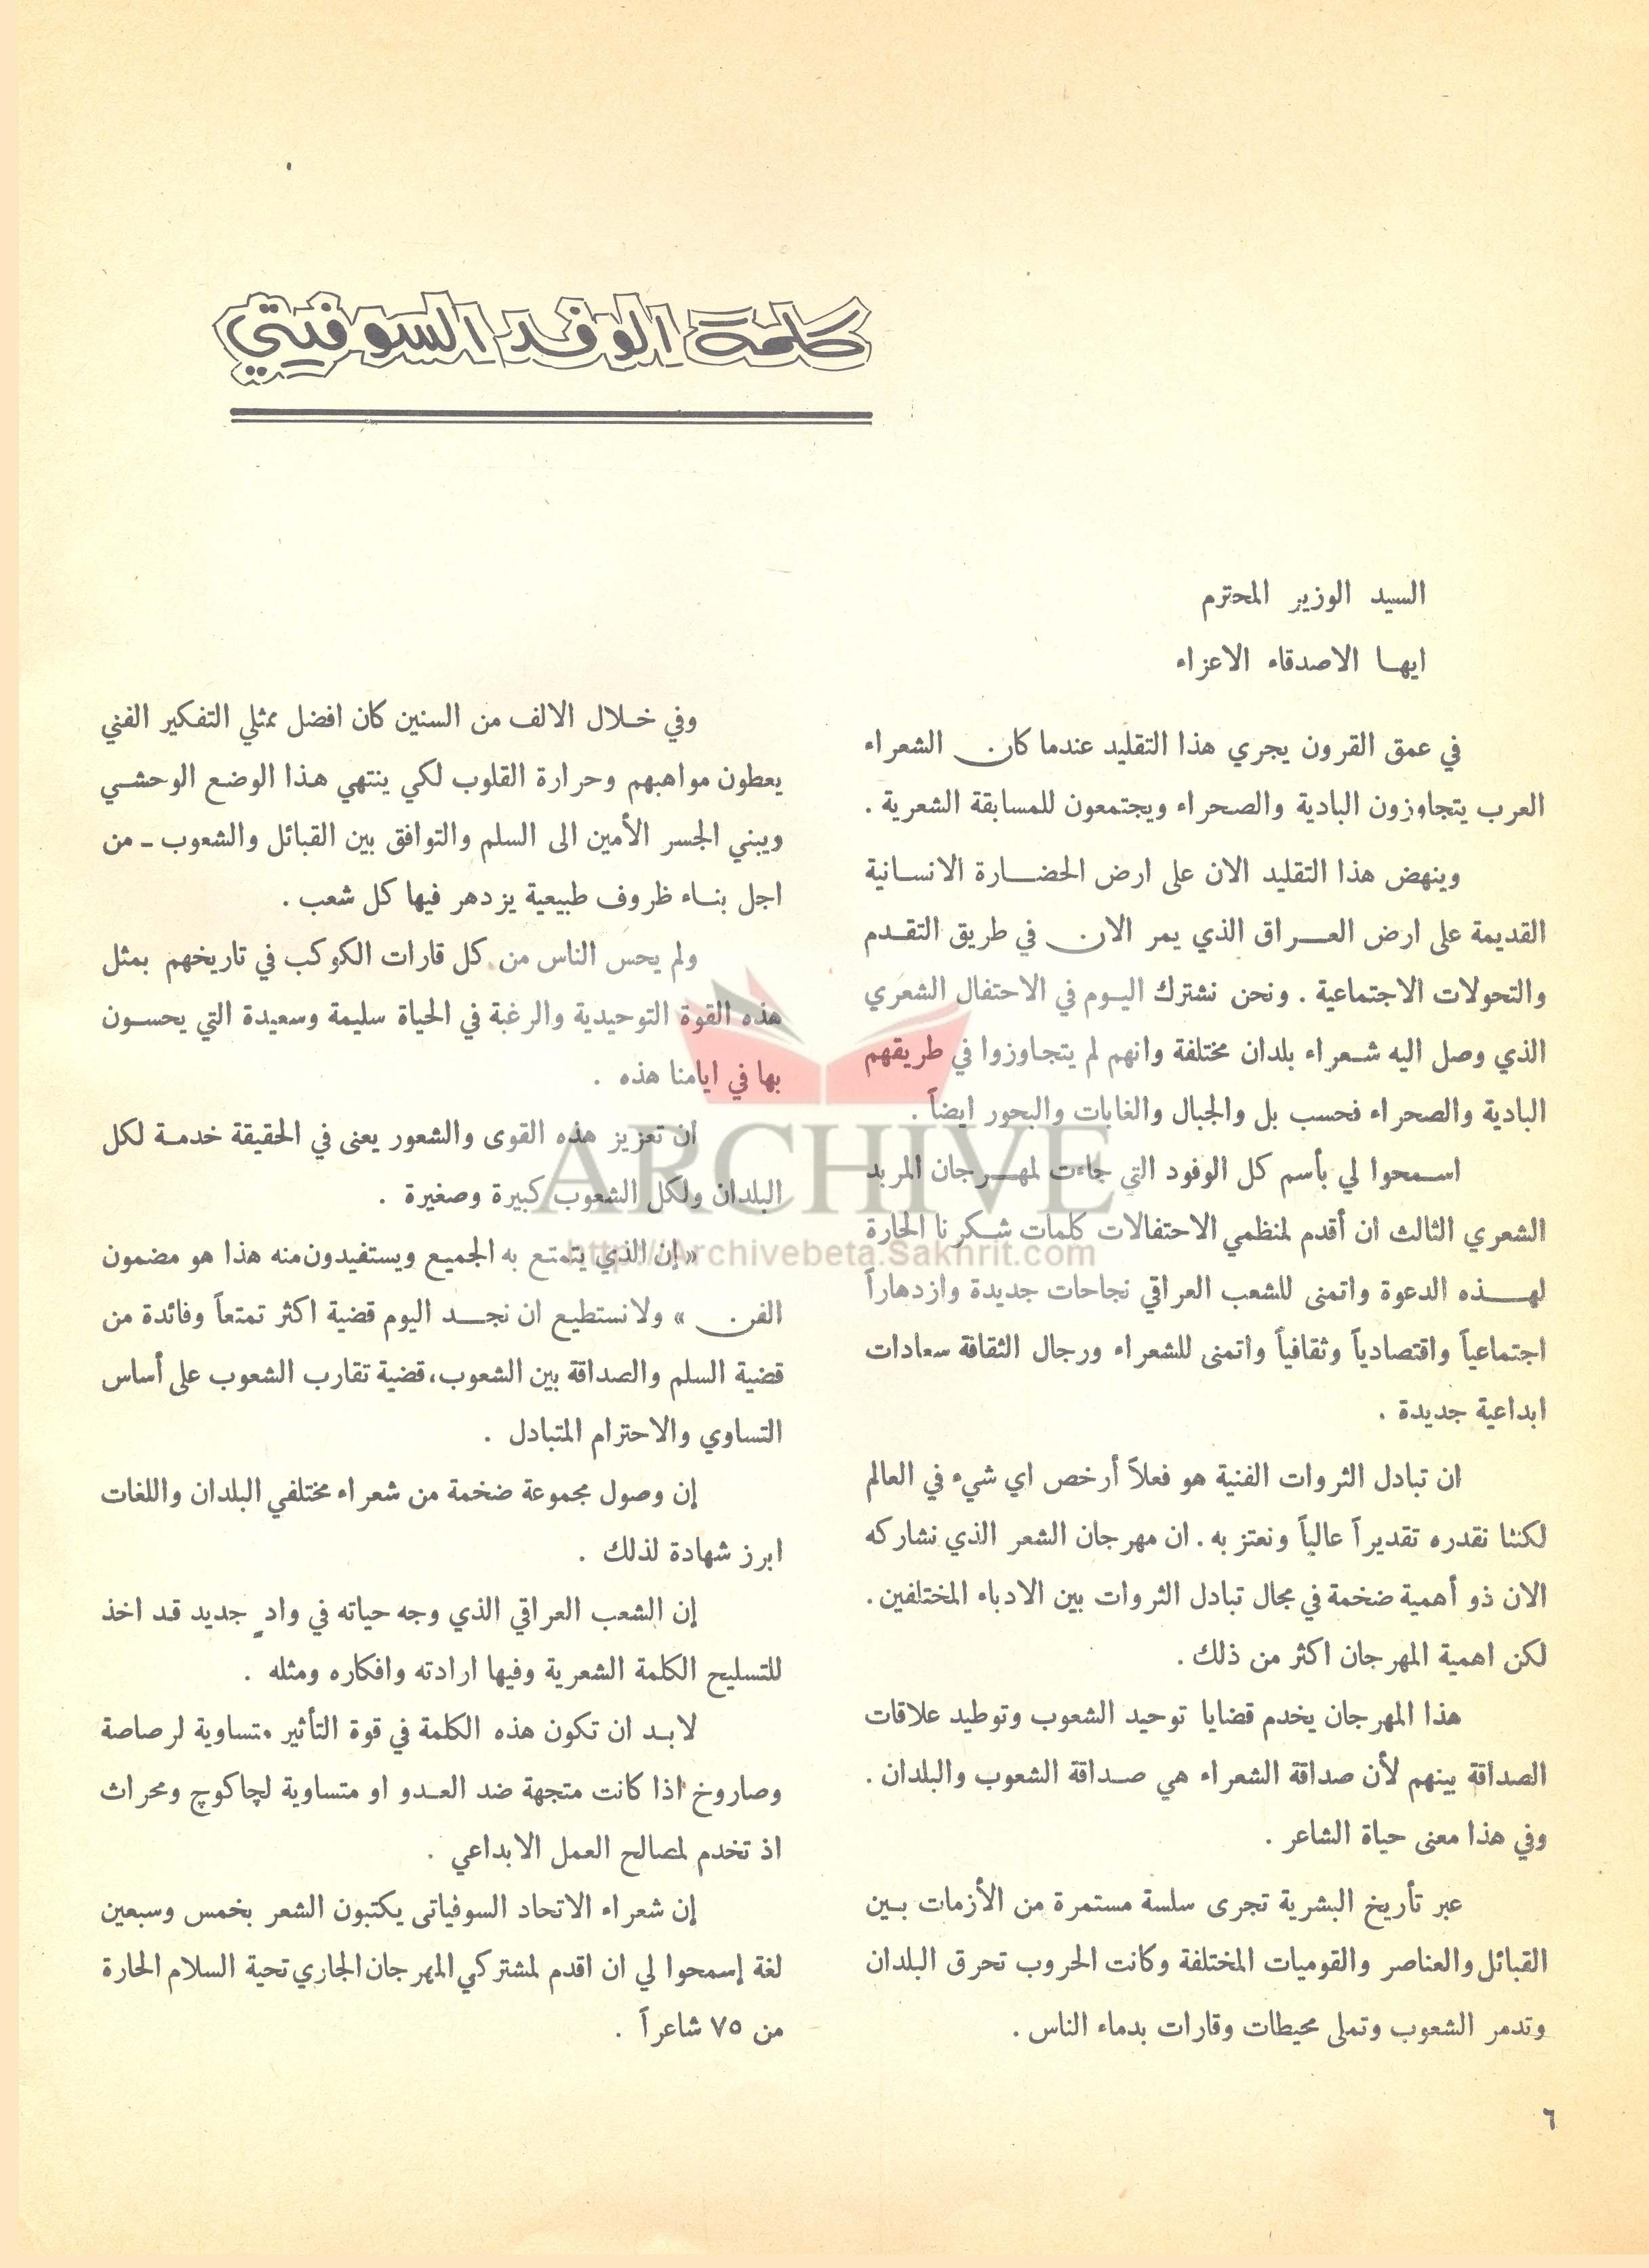 كلمة الوفد السوفيتي
السيد الوزير المحترم
ايها الاصدقاء الاعزاء
في عمق القرون يجري هذا التقليد عندما كان الشعراء
العرب يتجاوزون البادية والصحراء ويجتمعون للمسابقة الشعرية .
وينهض هذا التقليد الان على ارض الحضارة الانسانية
القديمة على ارض العراق الذي يمر الان في طريق التقدم
والتحولات الاجتماعية . ونحن نشترك اليوم في الاحتفال الشعري
الذي وصل اليه شعراء بلدان مختلفة وانهم لم يتجاوزوا في طريقهم
البادية والصحراء فحسب بل والجبال والغابات والبحور ايضاً .
اسمحوا لي بأسم كل الوفود التي جاءت لمهرجان المربد
الشعري الثالث ان أقدم لمنظمي الاحتفالات كلمات شكرنا الحارة
لهذه الدعوة واتمنى للشعب العراقي نجاحات جديدة وازدهاراً
اجتماعياً واقتصادياً وثقافياً واتمنى للشعراء ورجال الثقافة سعادات
ابداعية جديدة .
ان تبادل الثروات الفنية هو فعلاً أرخص اي شيء في العالم
لكننا نقدره تقديراً عالياً ونعتز به . ان مهرجان الشعر الذي نشاركه
الان ذو أهمية ضخمة في مجال تبادل الثروات بين الادباء المختلفين .
لكن اهمية المهرجان اكثر من ذلك .
هذا المهرجان يخدم قضايا توحيد الشعوب وتوطيد علاقات
الصداقة بينهم لأن صداقة الشعراء هي صداقة الشعوب والبلدان .
وفي هذا معنى حياة الشاعر .
عبر تأريخ البشرية تجرى سلسة مستمرة من الأزمات بين
القبائل والعناصر والقوميات المختلفة وكانت الحروب تحرق البلدان
وتدمر الشعوب وتملى محيطات وقارات بدماء الناس .
وفي خلال الالف من السنين كان افضل ممثلي التفكير الفني
يعطون مواهبهم وحرارة القلوب لكي ينتهي هذا الوضع الوحشي
ويبني الجسر الأمين الى السلم والتوافق بين القبائل والشعوب ـ من
اجل بناء ظروف طبيعية يزدهر فيها كل شعب .
ولم يحس الناس من كل قارات الكوكب في تاريخهم بمثل
هذه القوة التوحيدية والرغبة في الحياة سليمة وسعيدة التي يحسون
بها في ايامنا هذه .
ان تعزيز هذه القوى والشعور يعنى في الحقيقة خدمة لكل
البلدان ولكل الشعوب كبيرة وصغيرة .
« إن الذي يتمتع به الجميع ويستفيدون منه هذا هو مضمون
الفن » ولانستطيع ان نجد اليوم قضية اكثر تمتعاً وفائدة من
قضية السلم والصداقة بين الشعوب، قضية تقارب الشعوب على أساس
التساوي والاحترام المتبادل .
إن وصول مجموعة ضخمة من شعراء مختلفي البلدان واللغات
ابرز شهادة لذلك .
إن الشعب العراقي الذي وجه حياته في وادٍ جديد قد اخذ
للتسليح الكلمة الشعرية وفيها ارادته وافكاره ومثله .
لابد ان تكون هذه الكلمة في قوة التأثير متساوية لرصاصة
وصاروخ اذا كانت متجهة ضد العدو او متساوية لچاكوچ ومحراث
اذ تخدم لمصالح العمل الابداعي .
إن شعراء الاتحاد السوفياتى يكتبون الشعر بخمس وسبعين
لغة إسمحوا لي ان اقدم لمشتركي المهرجان الجاري تحية السلام الحارة
من ٧٥ شاعراً .
ARCHIVE
http://Archivebeta.Sakhrit.com
٦